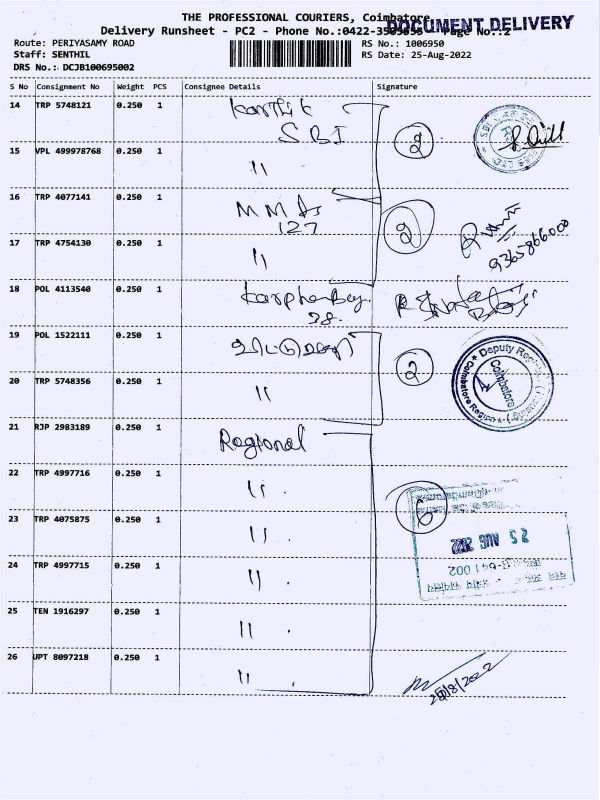 THE PROFESSIONAL COURIERS, Coimbatore
DOCUMENT DELIVERY
Delivery Runsheet - PC2 - Phone No.:0422- Page No.:2
Route: PERIYASAMY ROAD
RS No.: 1006950
Staff: SENTHIL
RS Date: 25-Aug-2022
DRS No.: DCJB100695002
S No Consignment No Weight PCS Consignee Details Signature
14 TRP 5748121 0.250 1 Karthik
SBI
2
15 VPL 499978768 0.250 1 "
16 TRP 4077141 0.250 1
127
2
17 TRP 4754130 0.250 1 "
9365866000
18 POL 4113540 0.250 1
19 POL 1522111 0.250 1
2
Deputy
Coimbatore
Coimbatore Region
20 TRP 5748356 0.250 1 "
21 RJP 2983189 0.250 1 Regional
22 TRP 4997716 0.250 1 "
6
23 TRP 4075875 0.250 1 "
25 AUG 2022
24 TRP 4997715 0.250 1 "
641 002
25 TEN 1916297 0.250 1 "
26 UPT 8097218 0.250 1 "
25/8/2022